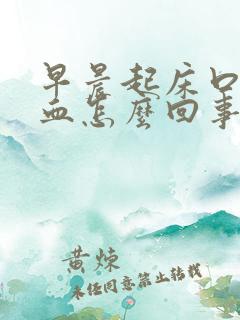 早晨起床口
血怎麼回事
黄炼
未经同意禁止转载